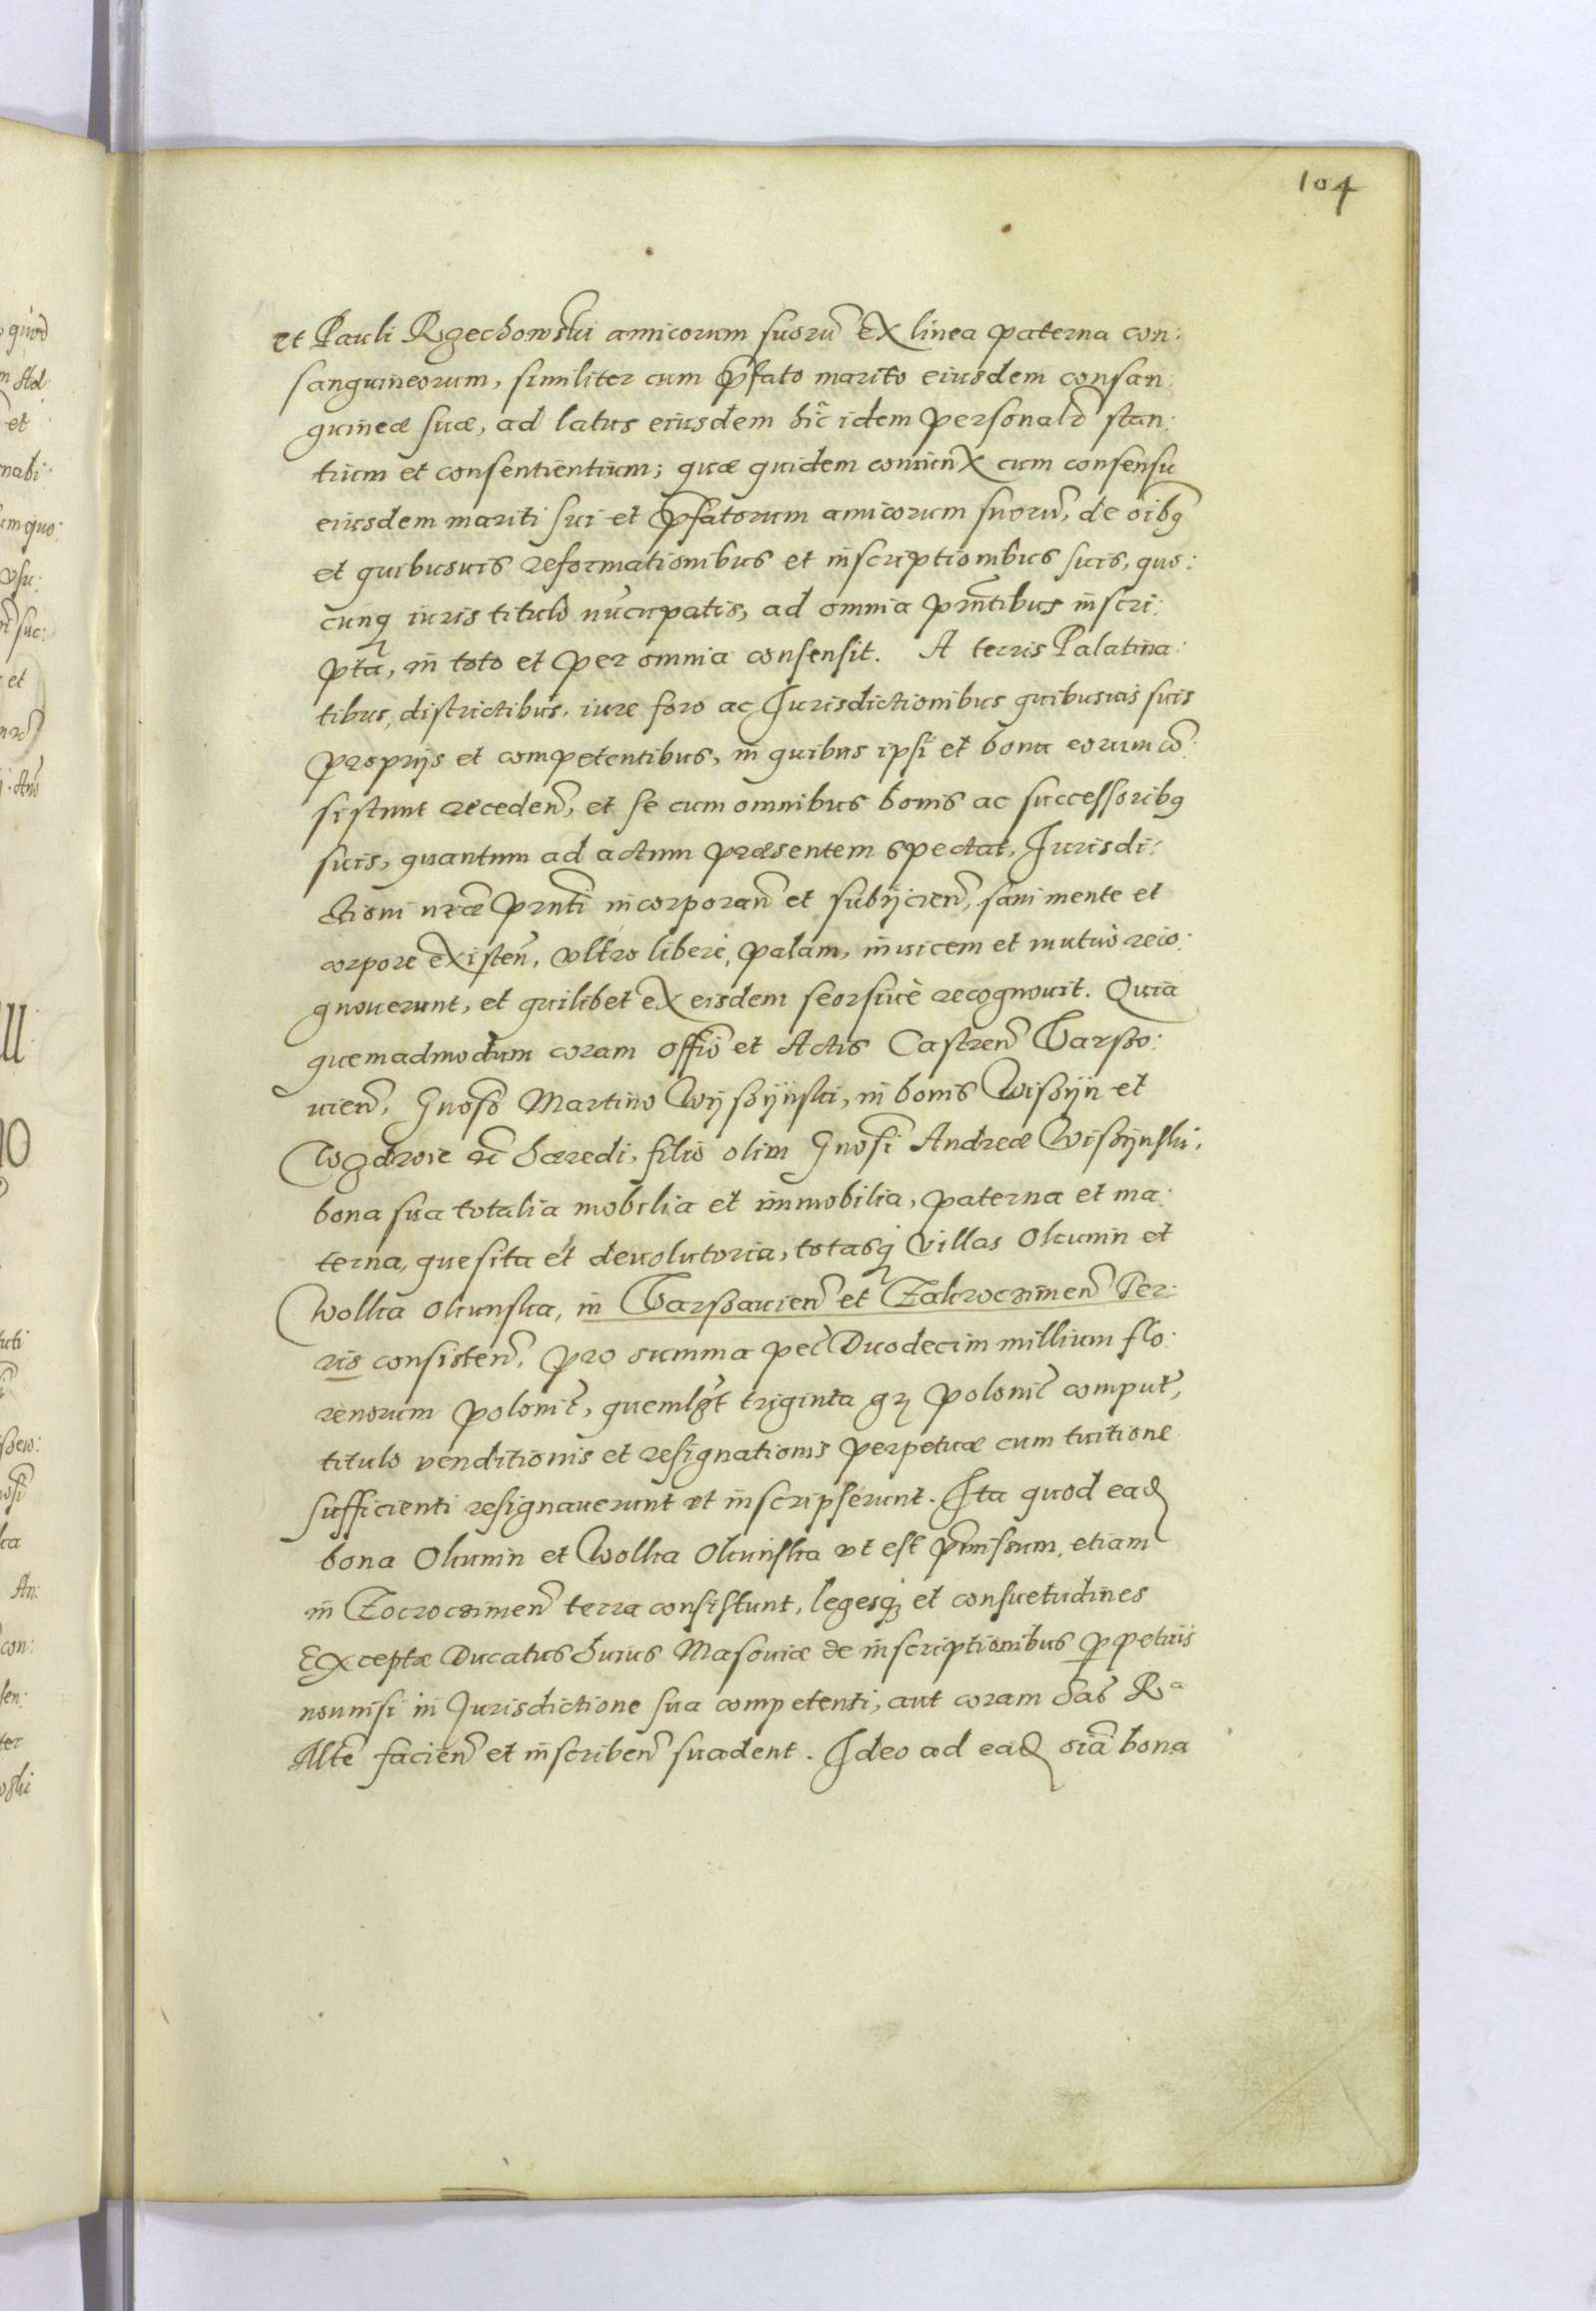 104
et Pauli Rzechowski amicorum suorũ ex linea paterna con:
sanguineorum, similiter cum p̃fato marito eiusdem consan:
guineæ suæ, ad latus eiusdem hĩc idem personalr̃ stan:
tium et consentientium; quæ quidem coniunx cum consensu
eiusdem mariti sui et p̃fatorum amicorum suorũ, de oĩbꝰ
et quibusuis reformationibus et inscriptionibus suis, quo:
cunqꝫ iuris titulo nũcupatis, ad omnia pñtibus inscri:
pta, in toto et per omnia consensit. A terris Palatina:
tibus, districtibus, iure foro ac Jurisdictionibus quibusuis suis
proprijs et competentibus, in quibus ipsi et bona eorum cõ:
sistunt receden̄, et se cum omnibus bonis ac successoribꝰ
suis, quantum ad actum præsentem spectat, Jurisdi:
ctioni nr̃æ pñti incorporan̄ et subijcien̄, sani mente et
corpore existen̄, vltro liberè, palam, inuicem et mutuò reco:
gnouerunt, et quilibet ex eisdem seorsiuè recognouit. Quia
quemadmodum coram offõ et Actis Castren̄ Varsso:
uien̄, Gnoso Martino Wijssijnski, in bonis Wissijn et
Wgdroie hæredi, filio olim Gnosi Andreæ Wissijnski,
bona sua totalia mobilia et immobilia, paterna et ma:
terna, quesita et deuolutoria, totasqꝫ villas Olcunin et
Wolka Olcunska, in Varssauien̄ et Zakrocimen̄ Ter:
ris consisten̄, pro summa pec̃ Duodecim millium flo:
renorum polonic̃, quemlib̃t triginta gr̃ polonic̃ comput̃,
titulo venditionis et resignationis perpetuæ cum tuitione
sufficienti resignauerunt et inscripserunt. Ita quod ead̃
bona Olcunin et Wolka Olcunska vt est p̃missum, etiam
in Zocrocimen̄ terra consistunt, legesqꝫ et consuetudines
Exceptæ Ducatus huius Masouiæ de inscriptionibus ꝑpetuis
nonnisi in Jurisdictione sua competenti, aut coram Sac̃ Rᵃ
Mtẽ facien̄ et inscriben̄ suadent. Ideo ad ead̃ oĩa bona